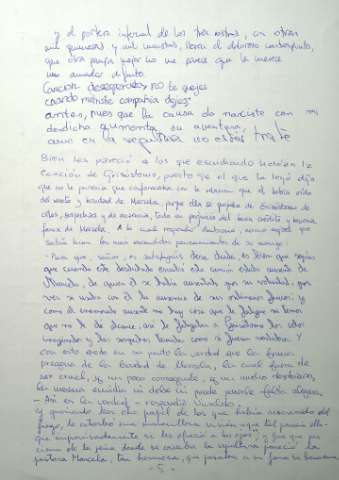 y el portero infernal de los tres rostros, con otras
mil quimeras y mil monstros, lleven el doloroso contrapunto,
que otra pompa mejor no me parece que la merece
un amador difunto.
Canción desesperada, no te quejes
cuando mi triste compañía dejes
antes, pues que la causa do naciste con mi
desdicha aumenta su ventura,
aun en la sepultura no estés triste
Bien les pareció a los que escuchado habían la
canción de Grisóstomo, puesto que el que la leyó dijo
que no le parecía que conformaba con la relación que él había oído
del recato y bondad de Marcela, porque en ella se quejaba Grisóstomo de
celos, sospechas y de ausencia, todo en perjuicio del buen crédito y buena
fama de Marcela. A lo cual respondió Ambrosio, como aquel que
sabía bien los más escondidos pensamientos de su amigo:
- Para que, señor, os satisfagáis desa duda, es bien que sepáis
que cuando este desdichado escribió esta canción estaba ausente de
Marcela, de quien él se había ausentado por su voluntad, por
ver si usaba con él la ausencia de sus ordinarios fueros. y
como al enamorado ausente no hay cosa que le fatigue ni temor
que no le dé alcance, así le fatigaban a Grisóstomo los celos
imaginados y las sospechas temidas como si fueran verdaderas. Y
con esto queda en su punto la verdad que la fama
pregona de la bondad de Marcela, la cual fuera de
ser cruel, y un poco arrogante, y un mucho desdeñosa,
la mesma envidia ni debe ni puede ponerle falta alguna.
- Así es la verdad - respondió Vivaldo.
y queriendo leer otro papel de los que había reservado del
fuego, lo estorbó una maravillosa visión - que tal parecía ella -
que improvisadamente se les ofreció a los ojos, y fue que por
cima de la peña donde se cavaba la sepultura pareció la
pastora Marcela, tan hermosa, que pasaba a su fama su hermosura
- 5 -